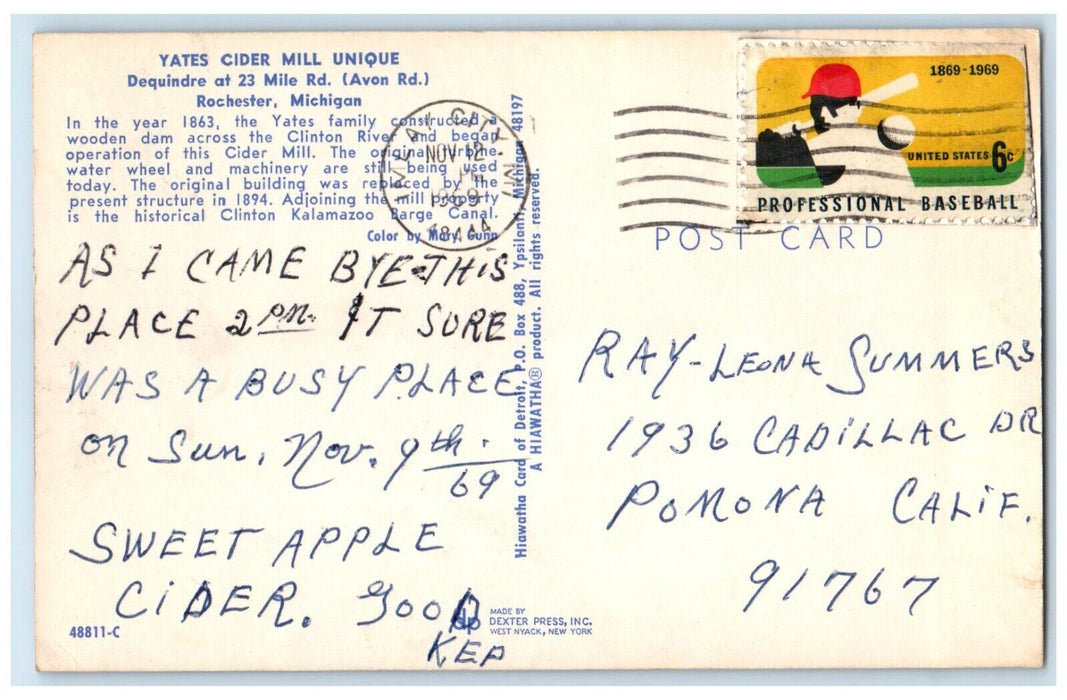 YATES CIDER MILL UNIQUE
Dequindre at 23 Mile Rd. (Avon Rd.)
Rochester, Michigan
In the year 1863, the Yates family constructed a
wooden dam across the Clinton River and began
operation of this Cider Mill. The original turbine-
water wheel and machinery are still being used
today. The original building was replaced by the
present structure in 1894. Adjoining the mill property
is the historical Clinton Kalamazoo Barge Canal.
Color by Mary Gunn
AS I CAME BYE-THIS
PLACE 2 PM. IT SURE
WAS A BUSY PLACE
on Sun, Nov. 9th.
69
SWEET APPLE
CIDER. GOOD
KEP
48811-C
MADE BY
dp DEXTER PRESS, INC.
WEST NYACK, NEW YORK
Hiawatha Card of Detroit, P.O. Box 488, Ypsilanti, Michigan 48197
A HIAWATHA® product. All rights reserved.
IMLAY CITY
NOV 12
1969
48444
1869-1969
UNITED STATES 6c
PROFESSIONAL BASEBALL
POST CARD
RAY-LEONA SUMMERS
1936 CADILLAC DR
POMONA CALIF.
91767